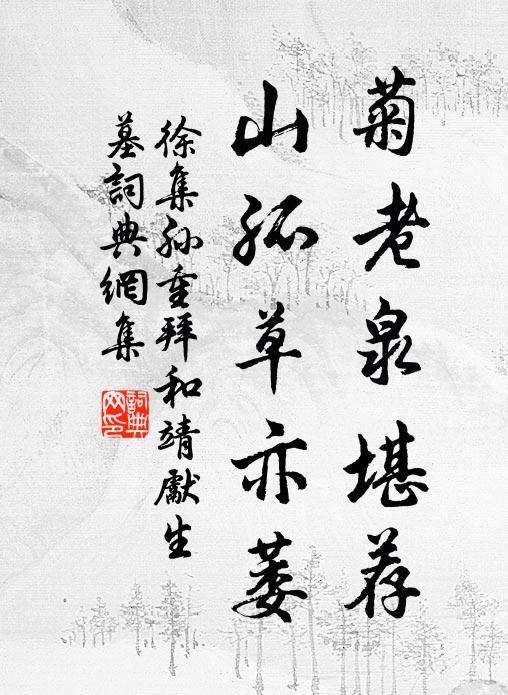 菊老泉堪荐
山孤草亦萎
徐集孙重拜和靖处士
墓詞典網集
詞典网印